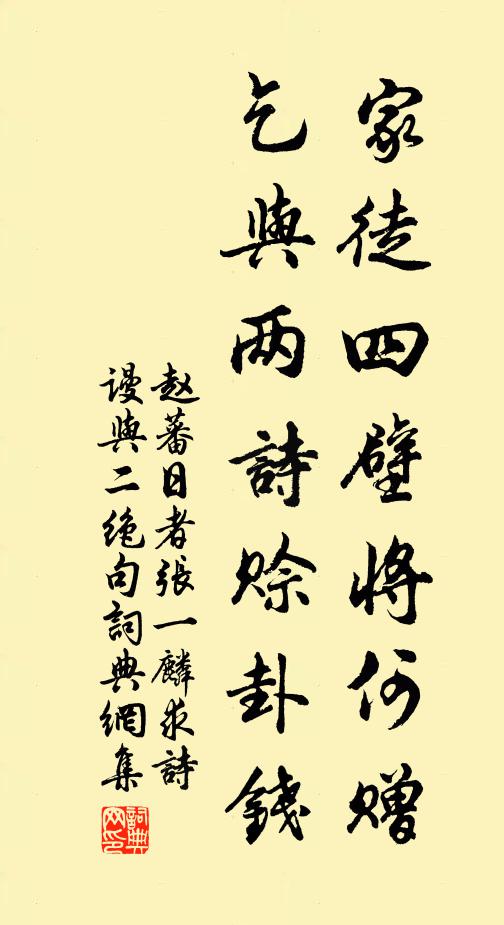 家徒四壁将何赠
乞與两詩赊卦錢
赵蕃日者張一麟求詩
謾與二绝句詞典網集
詞典网印